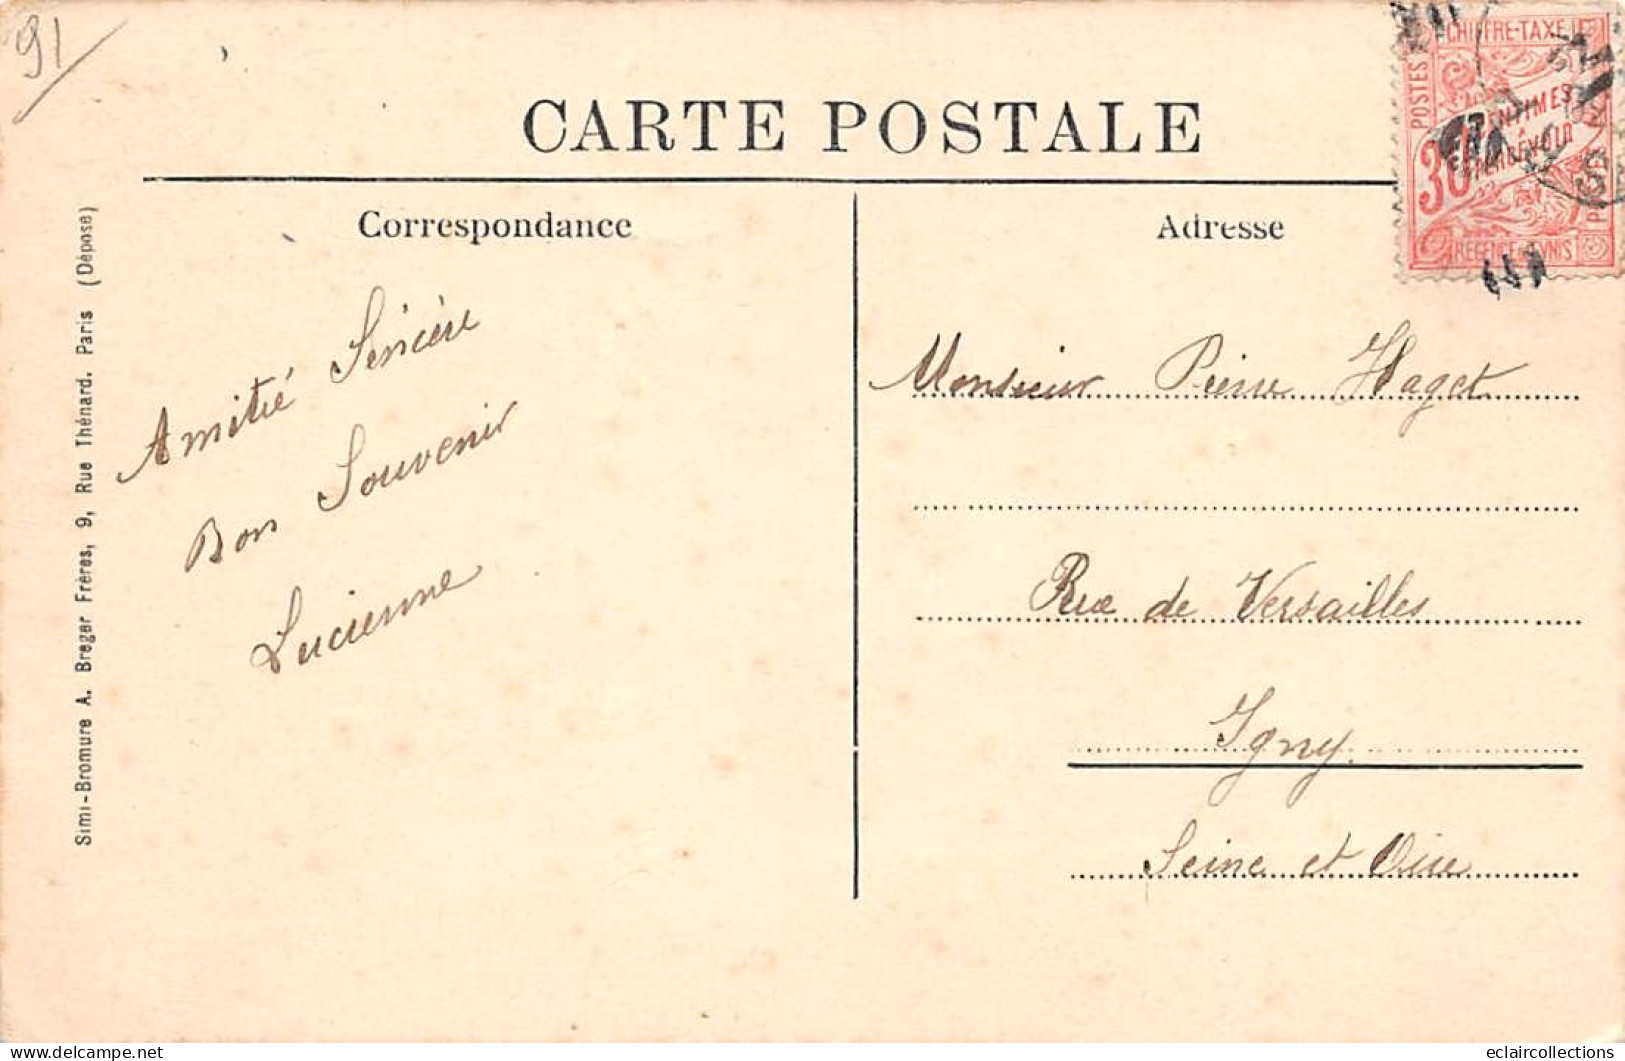 91
CARTE POSTALE
Correspondance
Adresse
POSTES
CHIFFRE-TAXE
30
CENTIMES
À
PERCEVOIR
Amitié Sincère
Bon Souvenir
Lucienne
Monsieur Pierre Haget
Rue de Versailles
Igny.
Seine et Oise
Simi-Bromure A. Breger Frères, 9, Rue Thénard. Paris (Déposé)
eclaircollections